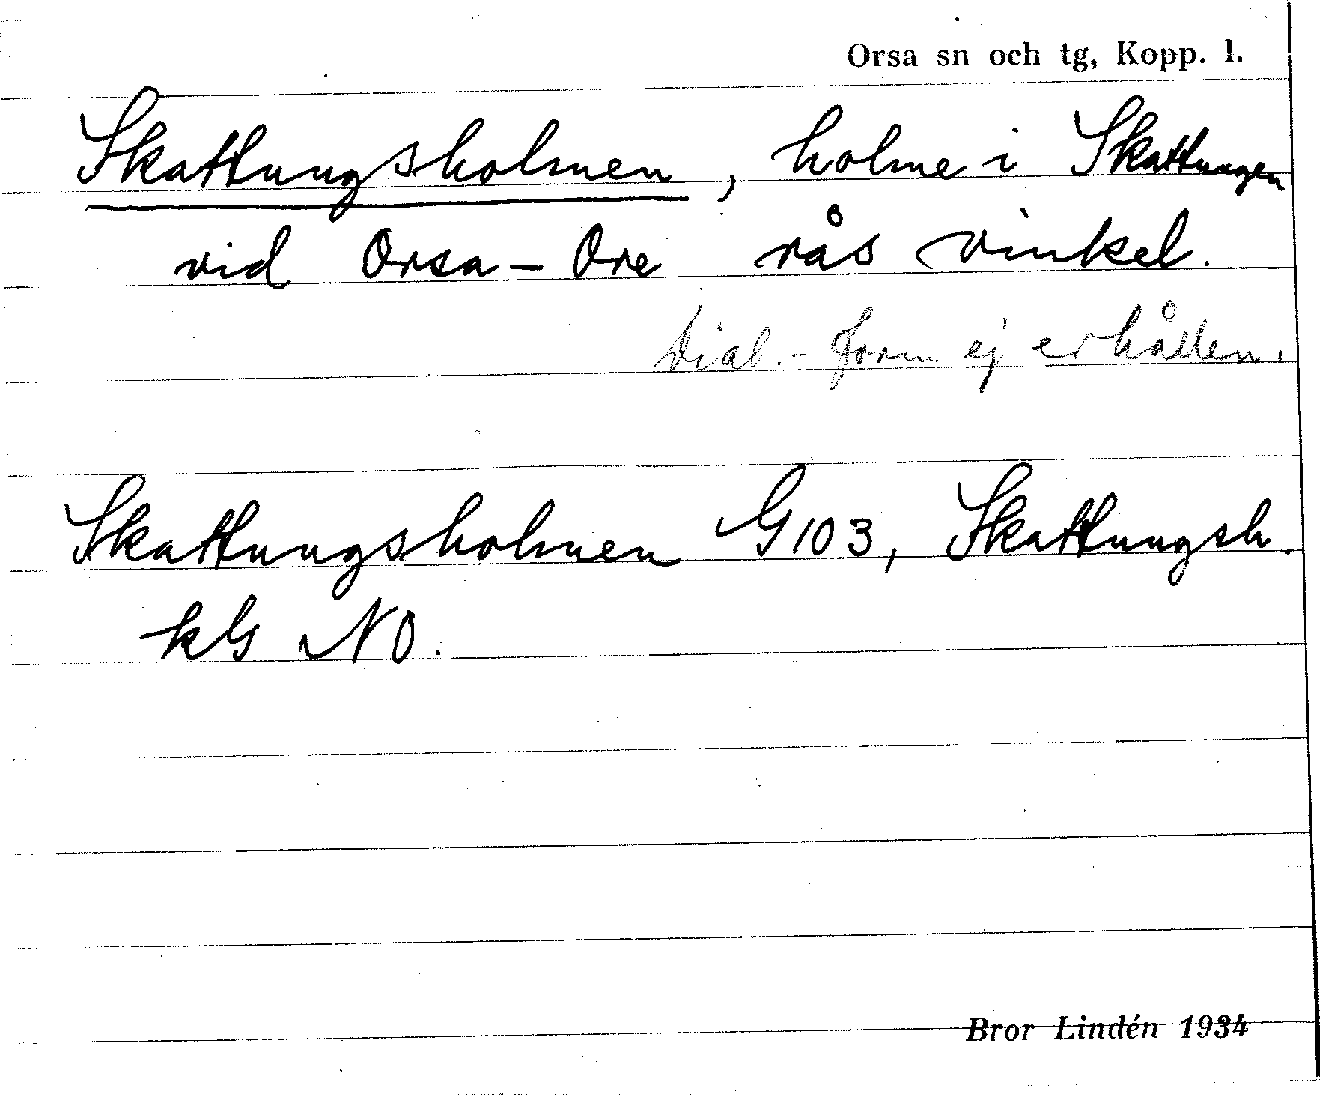 Orsa sn och tg, Kopp. l.
Skattungsholmen, holme i Skattungen
vid Orsa - Ore rås vinkel.
Dial.-form ej erhållen.
Skattungsholmen G103, Skattungsh.
kG NO.
Bror Lindén 1934